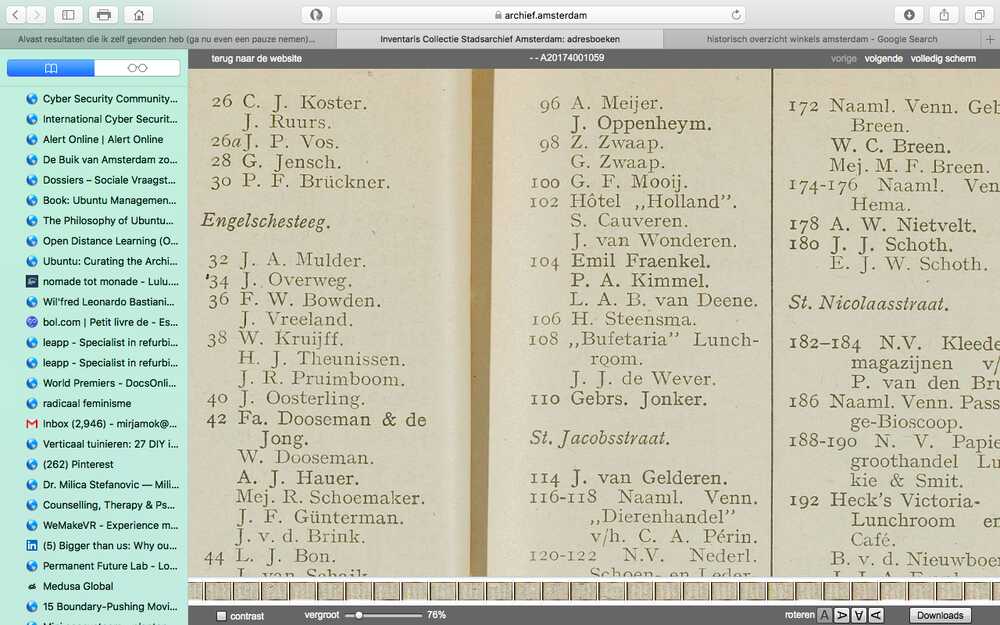 archief.amsterdam
Alvast resultaten die ik zelf gevonden heb (ga nu even een pauze nemen)...
Inventaris Collectie Stadsarchief Amsterdam: adresboeken
historisch overzicht winkels amsterdam - Google Search
terug naar de website
- - A20174001059
vorige volgende volledig scherm
Cyber Security Community...
International Cyber Securit...
Alert Online | Alert Online
De Buik van Amsterdam zo...
Dossiers – Sociale Vraagst...
Book: Ubuntu Managemen...
The Philosophy of Ubuntu...
Open Distance Learning (O...
Ubuntu: Curating the Archi...
nomade tot monade - Lulu....
Wil'fred Leonardo Bastiani...
bol.com | Petit livre de - Es...
leapp - Specialist in refurbi...
leapp - Specialist in refurbi...
World Premiers - DocsOnli...
radicaal feminisme
Inbox (2,946) - mirjamok@...
Verticaal tuinieren: 27 DIY i...
(262) Pinterest
Dr. Milica Stefanovic — Mili...
Counselling, Therapy & Ps...
WeMakeVR - Experience m...
(5) Bigger than us: Why ou...
Permanent Future Lab - Lo...
Medusa Global
15 Boundary-Pushing Movi...
26 C. J. Koster.
J. Ruurs.
26a J. P. Vos.
28 G. Jensch.
30 P. F. Brückner.
Engelschesteeg.
32 J. A. Mulder.
'34 J. Overweg.
36 F. W. Bowden.
J. Vreeland.
38 W. Kruijff.
H. J. Theunissen.
J. R. Pruimboom.
40 J. Oosterling.
42 Fa. Dooseman & de
Jong.
W. Dooseman.
A. J. Hauer.
Mej. R. Schoemaker.
J. F. Günterman.
J. v. d. Brink.
44 L. J. Bon.
J. van Schaik
96 A. Meijer.
J. Oppenheym.
98 Z. Zwaap.
G. Zwaap.
100 G. F. Mooij.
102 Hôtel „Holland".
S. Cauveren.
J. van Wonderen.
104 Emil Fraenkel.
P. A. Kimmel.
L. A. B. van Deene.
106 H. Steensma.
108 „Bufetaria" Lunch-
room.
J. J. de Wever.
110 Gebrs. Jonker.
St. Jacobsstraat.
114 J. van Gelderen.
116-118 Naaml. Venn.
„Dierenhandel"
v/h. C. A. Périn.
120-122 N.V. Nederl.
Schoen- en Leder
172 Naaml. Venn. Geb
Breen.
W. C. Breen.
Mej. M. F. Breen.
174-176 Naaml. Ven
Hema.
178 A. W. Nietvelt.
180 J. J. Schoth.
E. J. W. Schoth.
St. Nicolaasstraat.
182–184 N.V. Kleede
magazijnen v/
P. van den Bru
186 Naaml. Venn. Pass
ge-Bioscoop.
188-190 N. V. Papie
groothandel Lu
kie & Smit.
192 Heck's Victoria-
Lunchroom en
Café.
B. v. d. Nieuwboe
contrast
vergroot
76%
roteren A A A A
Downloads